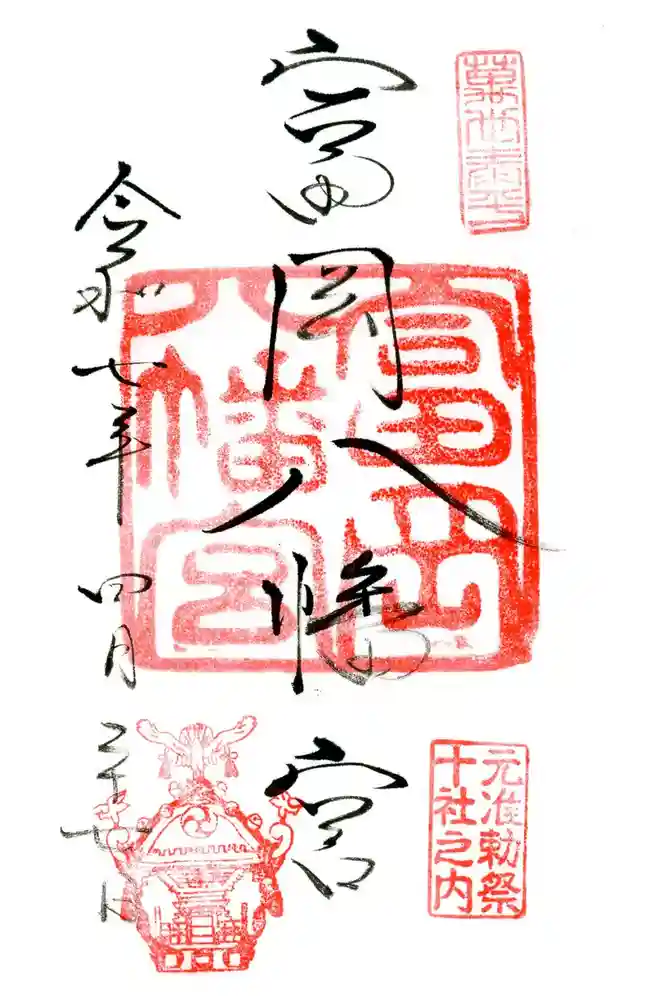 萬世泰平
富岡八幡宮
富岡八幡宮
元准勅祭
十社之内
令和七年四月二十七日